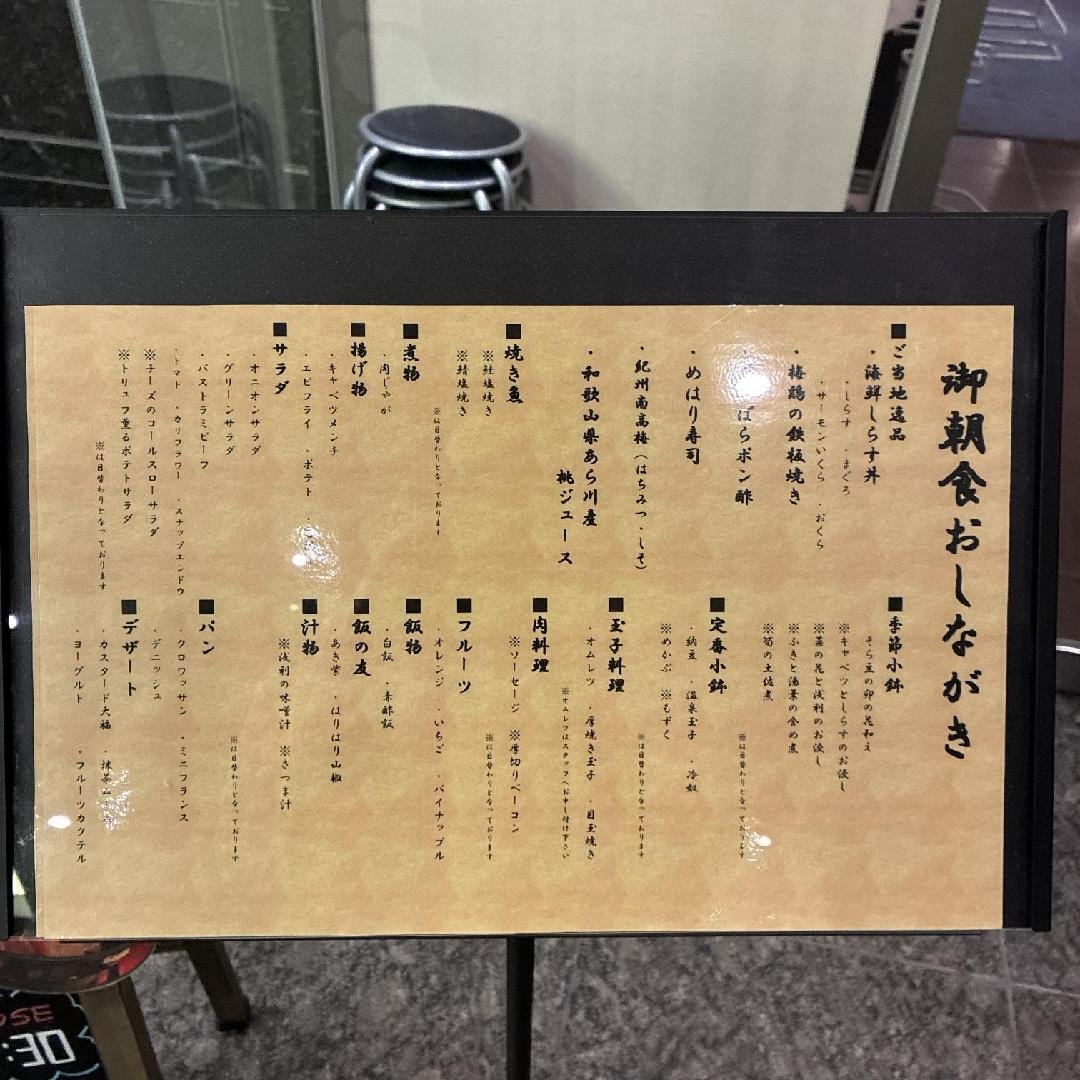 御朝食おしながき
■ご当地逸品
・海鮮しらす丼
・しらす ・まぐろ
・サーモンいくら ・おくら
・梅鶏の鉄板焼き
ぽらポン酢
・めはり寿司
・紀州南高梅（はちみつ・しそ）
・和歌山県あら川産
桃ジュース
■焼き魚
※鮭塩焼き
※鯖塩焼き
※は日替わりとなっております
■煮物
・肉じゃが
■揚げ物
・キャベツメンチ
・エビフライ ・ポテト
■サラダ
・オニオンサラダ
・グリーンサラダ
・パストラミビーフ
・トマト ・カリフラワー ・スナップエンドウ
※チーズのコールスローサラダ
※トリュフ薫るポテトサラダ
※は日替わりとなっております
■季節小鉢
そら豆の卯の花和え
※キャベツとしらすのお浸し
※菜の花と浅利のお浸し
※ふきと湯葉の含め煮
※筍の土佐煮
※は日替わりとなっております
■定番小鉢
・納豆 ・温泉玉子 ・冷奴
※めかぶ ※もずく
※は日替わりとなっております
■玉子料理
・オムレツ ・厚焼き玉子 ・目玉焼き
※オムレツはスタッフへお申し付け下さい
■肉料理
※ソーセージ ※厚切りベーコン
※は日替わりとなっております
■フルーツ
・オレンジ ・いちご ・パイナップル
■飯物
・白飯 ・赤酢飯
■飯の友
・あき紫 ・はりはり山椒
■汁物
※浅利の味噌汁 ※さつま汁
※は日替わりとなっております
■パン
・クロワッサン ・ミニフランス
・デニッシュ
■デザート
・カスタード大福 ・抹茶ムース
・ヨーグルト ・フルーツカクテル
OSE
:30